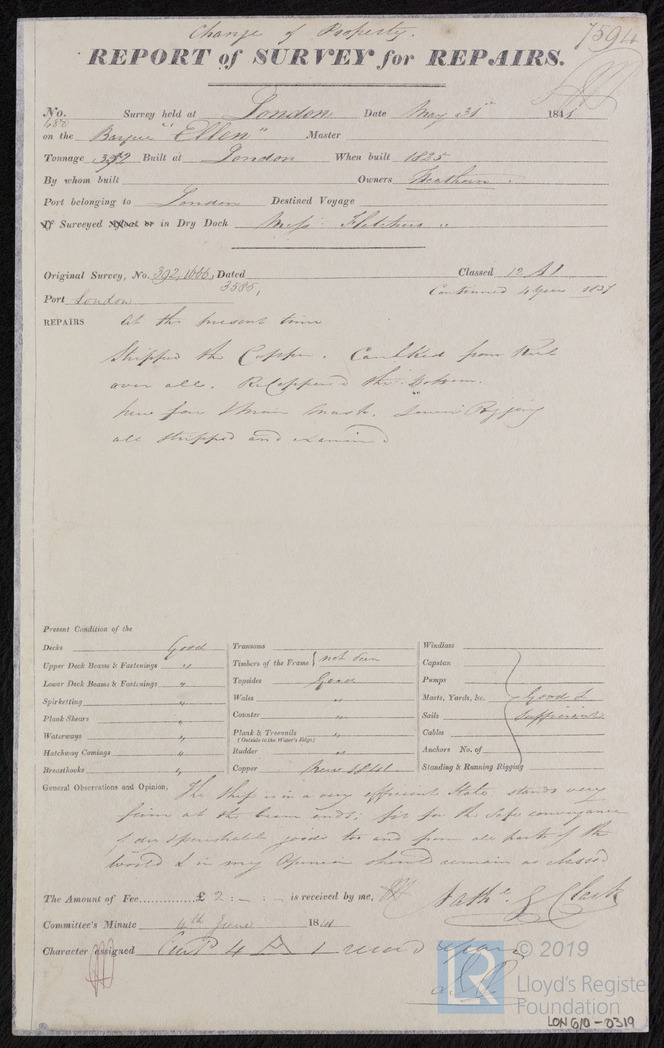 Change of Property.
7594
REPORT of SURVEY for REPAIRS.
No. Survey held at London Date May 31st 1841
on the Barque "Ellen" Master
Tonnage 392 Built at London When built 1825
By whom built Owners
Port belonging to London Destined Voyage
If Surveyed Afloat or in Dry Dock Messrs Fletchers
Original Survey, No. 392, 1666, Dated Classed 12 A1
3585,
Port London Continued 4 Years 1837
REPAIRS At the present time
Stripped the Copper. Caulked from Keel
over all. ReCoppered the Bottom.
New fore & Main Masts. Rigging
all stripped and examined
Present Condition of the
Decks Good
Upper Deck Beams & Fastenings "
Lower Deck Beams & Fastenings "
Spirketting "
Plank Shears "
Waterways "
Hatchway Comings "
Breasthooks "
Transoms
Timbers of the Frame } not seen
Topsides Good
Wales "
Counter "
Plank & Treenails "
(Outside to the Water's Edge)
Rudder "
Copper New 1841
Windlass
Capstan
Pumps
Masts, Yards, &c. Good &
Sails Sufficient
Cables
Anchors No. of
Standing & Running Rigging
General Observations and Opinion, The Ship is in a very efficient State stands very
firm at the beam ends; fit for the safe conveyance
of dry & perishable goods to and from all parts of the
World & in my Opinion should remain as classed
The Amount of Fee............£ 2 : - : - is received by me, Nathl. G Clark
Committee's Minute 4th June 1841
Character assigned Contd 4 A 1
© 2019
LR
Lloyd's Register
Foundation
LON 610-0319